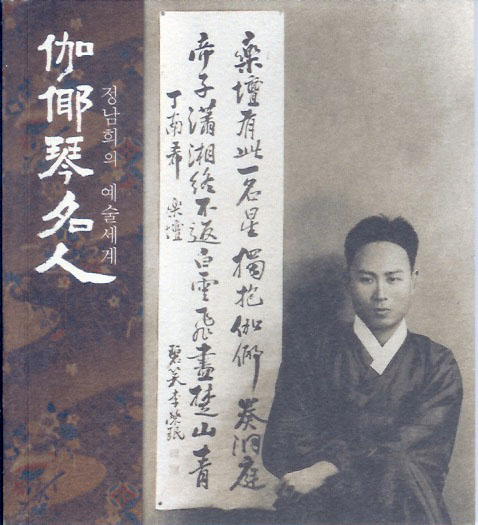 伽倻琴名人
정남희의 예술세계
楽壇有此一名星 獨抱伽倻 奏洞庭
帝子瀟湘終不返 白雲飛盡楚山青
丁南希 楽壇
碧笑李榮珉